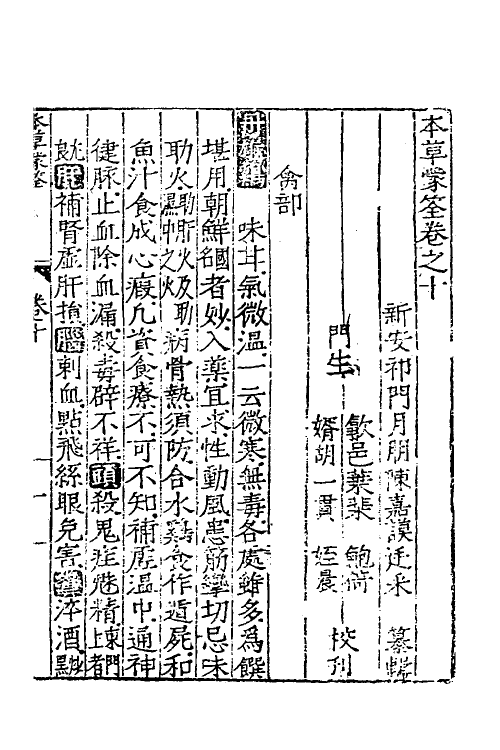 本草蒙筌卷之十
新安祁門月朋陳嘉謨廷采 纂輯
門生
歙邑葉棐 鮑倚
婿胡一貫 姪晨
校刊
禽部
丹雄雞 味甘氣微溫一云微寒無毒各處雖多爲饌
堪用朝鮮國者妙入藥宜求性動風患筋攣切忌味
助火助肝火及助濕中之火病骨熱須防合水雞食作遁屍和
魚汁食成心瘕凡資食療不可不知補虛溫中通神
健脉止血除血漏殺毒辟不祥頭殺鬼疰魅精上東門者
肶補腎虛肝損腦刺血點飛絲眼免害 淬酒點
本草蒙筌 卷十 一